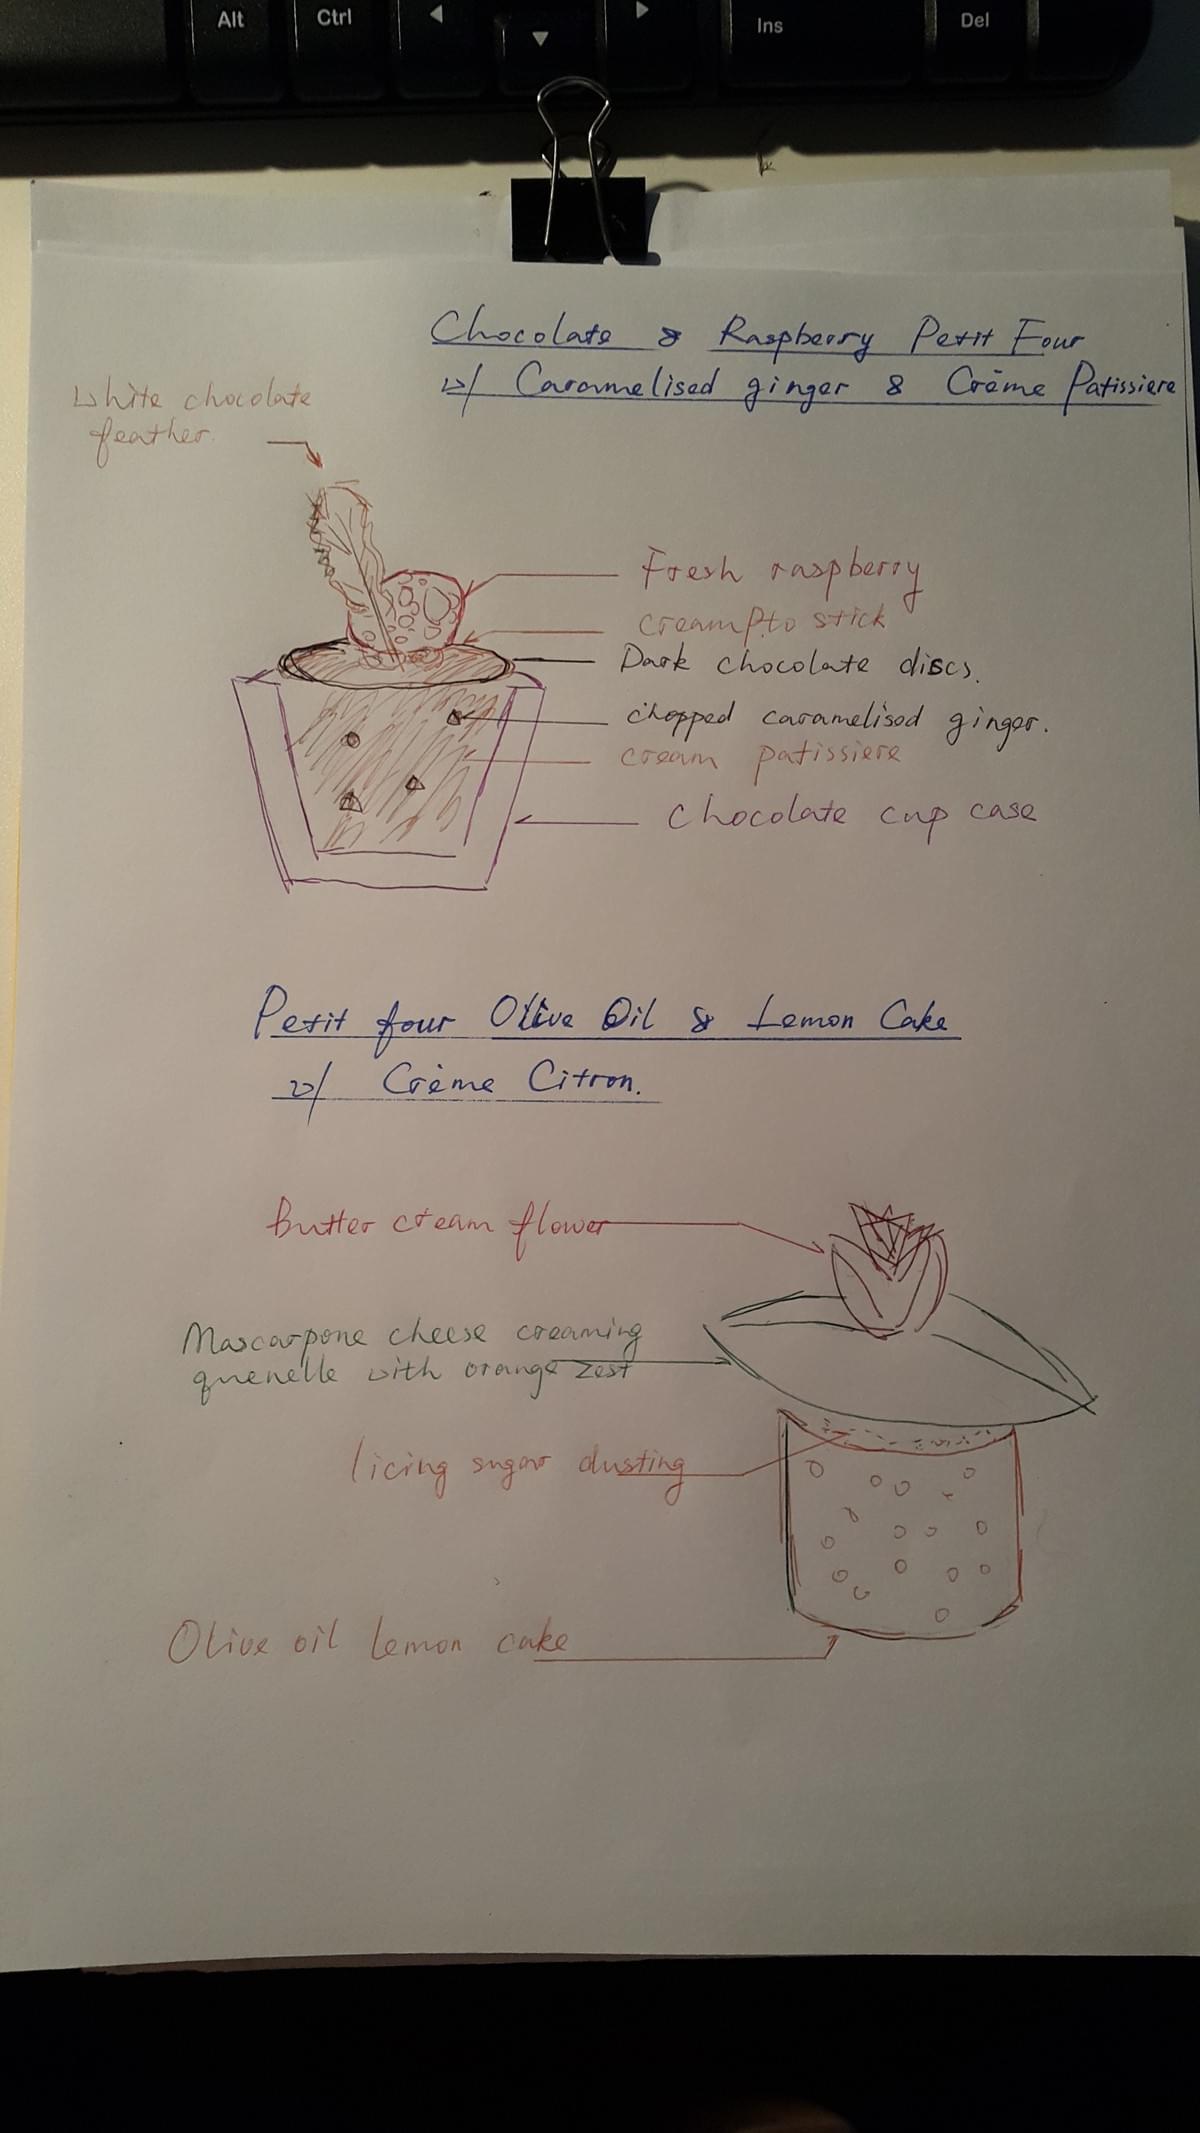 Alt
Ctrl
Ins
Del
Chocolate & Raspberry Petit Four
w/ Caramelised ginger & Crème Patissiere
White chocolate
feather.
Fresh raspberry
cream P.to stick
Dark chocolate discs.
chopped caramelised ginger.
cream patissiere
Chocolate cup case
Petit four Olive Oil & Lemon Cake
w/ Crème Citron.
Butter cream flower
Mascarpone cheese creaming
quenelle with orange zest
Iicing sugar dusting
Olive oil lemon cake